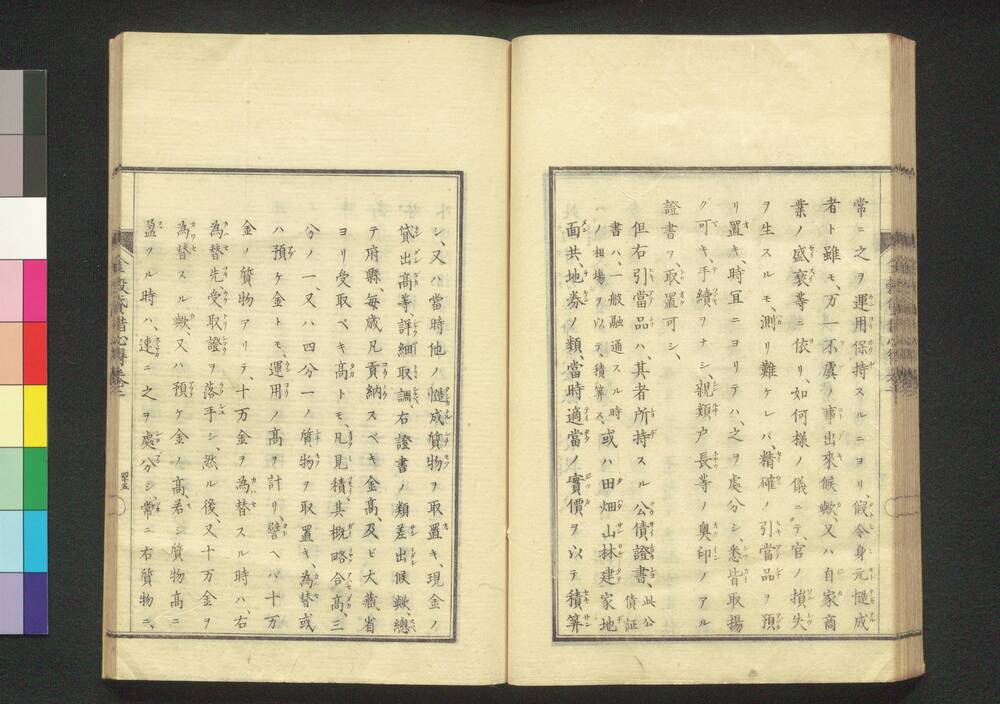 常ニ之ヲ運用保持スルニヨリ、假令身元慥成
者ト雖モ、万一不虞ノ事出來候歟、又ハ自家商
業ノ盛衰等ニ依リ、如何樣ノ儀ニテ、官ノ損失
ヲ生スルモ、測リ難ケレバ、精確ノ引當品ヲ預
リ置キ、時宜ニヨリテハ、之ヲ處分シ、悉皆取揚
グ可キ、手續ヲナシ、親類戸長等ノ奥印ノアル
證書ヲ、取置可シ、
但右引當品ハ、其者所持スル公債證書、此公債証
書ハ、一般融通スル時ノ相場ヲ以テ、積算ス、或ハ田畑山林建家地
面共地券ノ類、當時適當ノ實價ヲ以テ積算
シ、又ハ當時他ノ慥成質物ヲ取置キ、現金ノ
貸出高等、詳細取調、右證書ノ類差出候歟、總
テ府縣、毎歳凡貢納スベキ金高、及ビ大藏省
ヨリ受取ベキ高トモ、凡見積、其概略合高、三
分ノ一、又ハ四分一ノ質物ヲ取置キ、為替或
ハ預ケ金トモ、運用ノ高ヲ計リ、譬ヘバ十万
金ノ質物アリテ、十万金ヲ為替スル時ハ、右
為替先受取證ヲ落手シ、然ル後、又十万金ヲ
為替スル歟、又ハ預ケ金ノ高、若シ質物高ニ
盈ツル時ハ、速ニ之ヲ處分シ、常ニ右質物ニ、
四十五